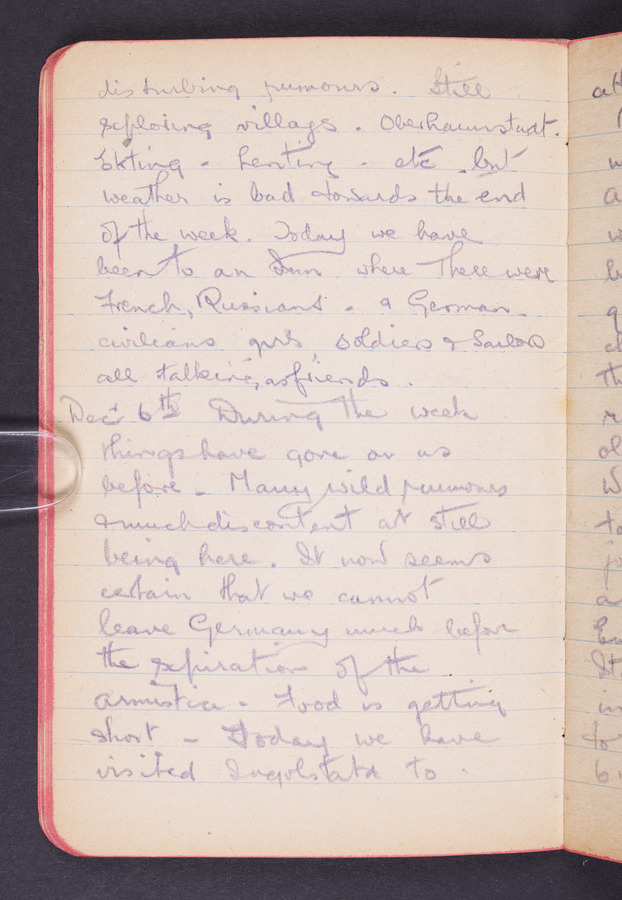 disturbing rumours. Still
exploring village. Oberhaunstadt.
Ekting - Lenting - etc but
weather is bad towards the end
of the week. Today we have
been to an Inn where there were
French, Russians - & German
civilians girls soldiers & Sailors
all talking, as friends.
Dec 6th During the week
things have gone on as
before - Many wild rumours
& much discontent at still
being here. It now seems
certain that we cannot
leave Germany much before
the expiration of the
armistice - Food is getting
short - Today we have
visited Ingolstadt to